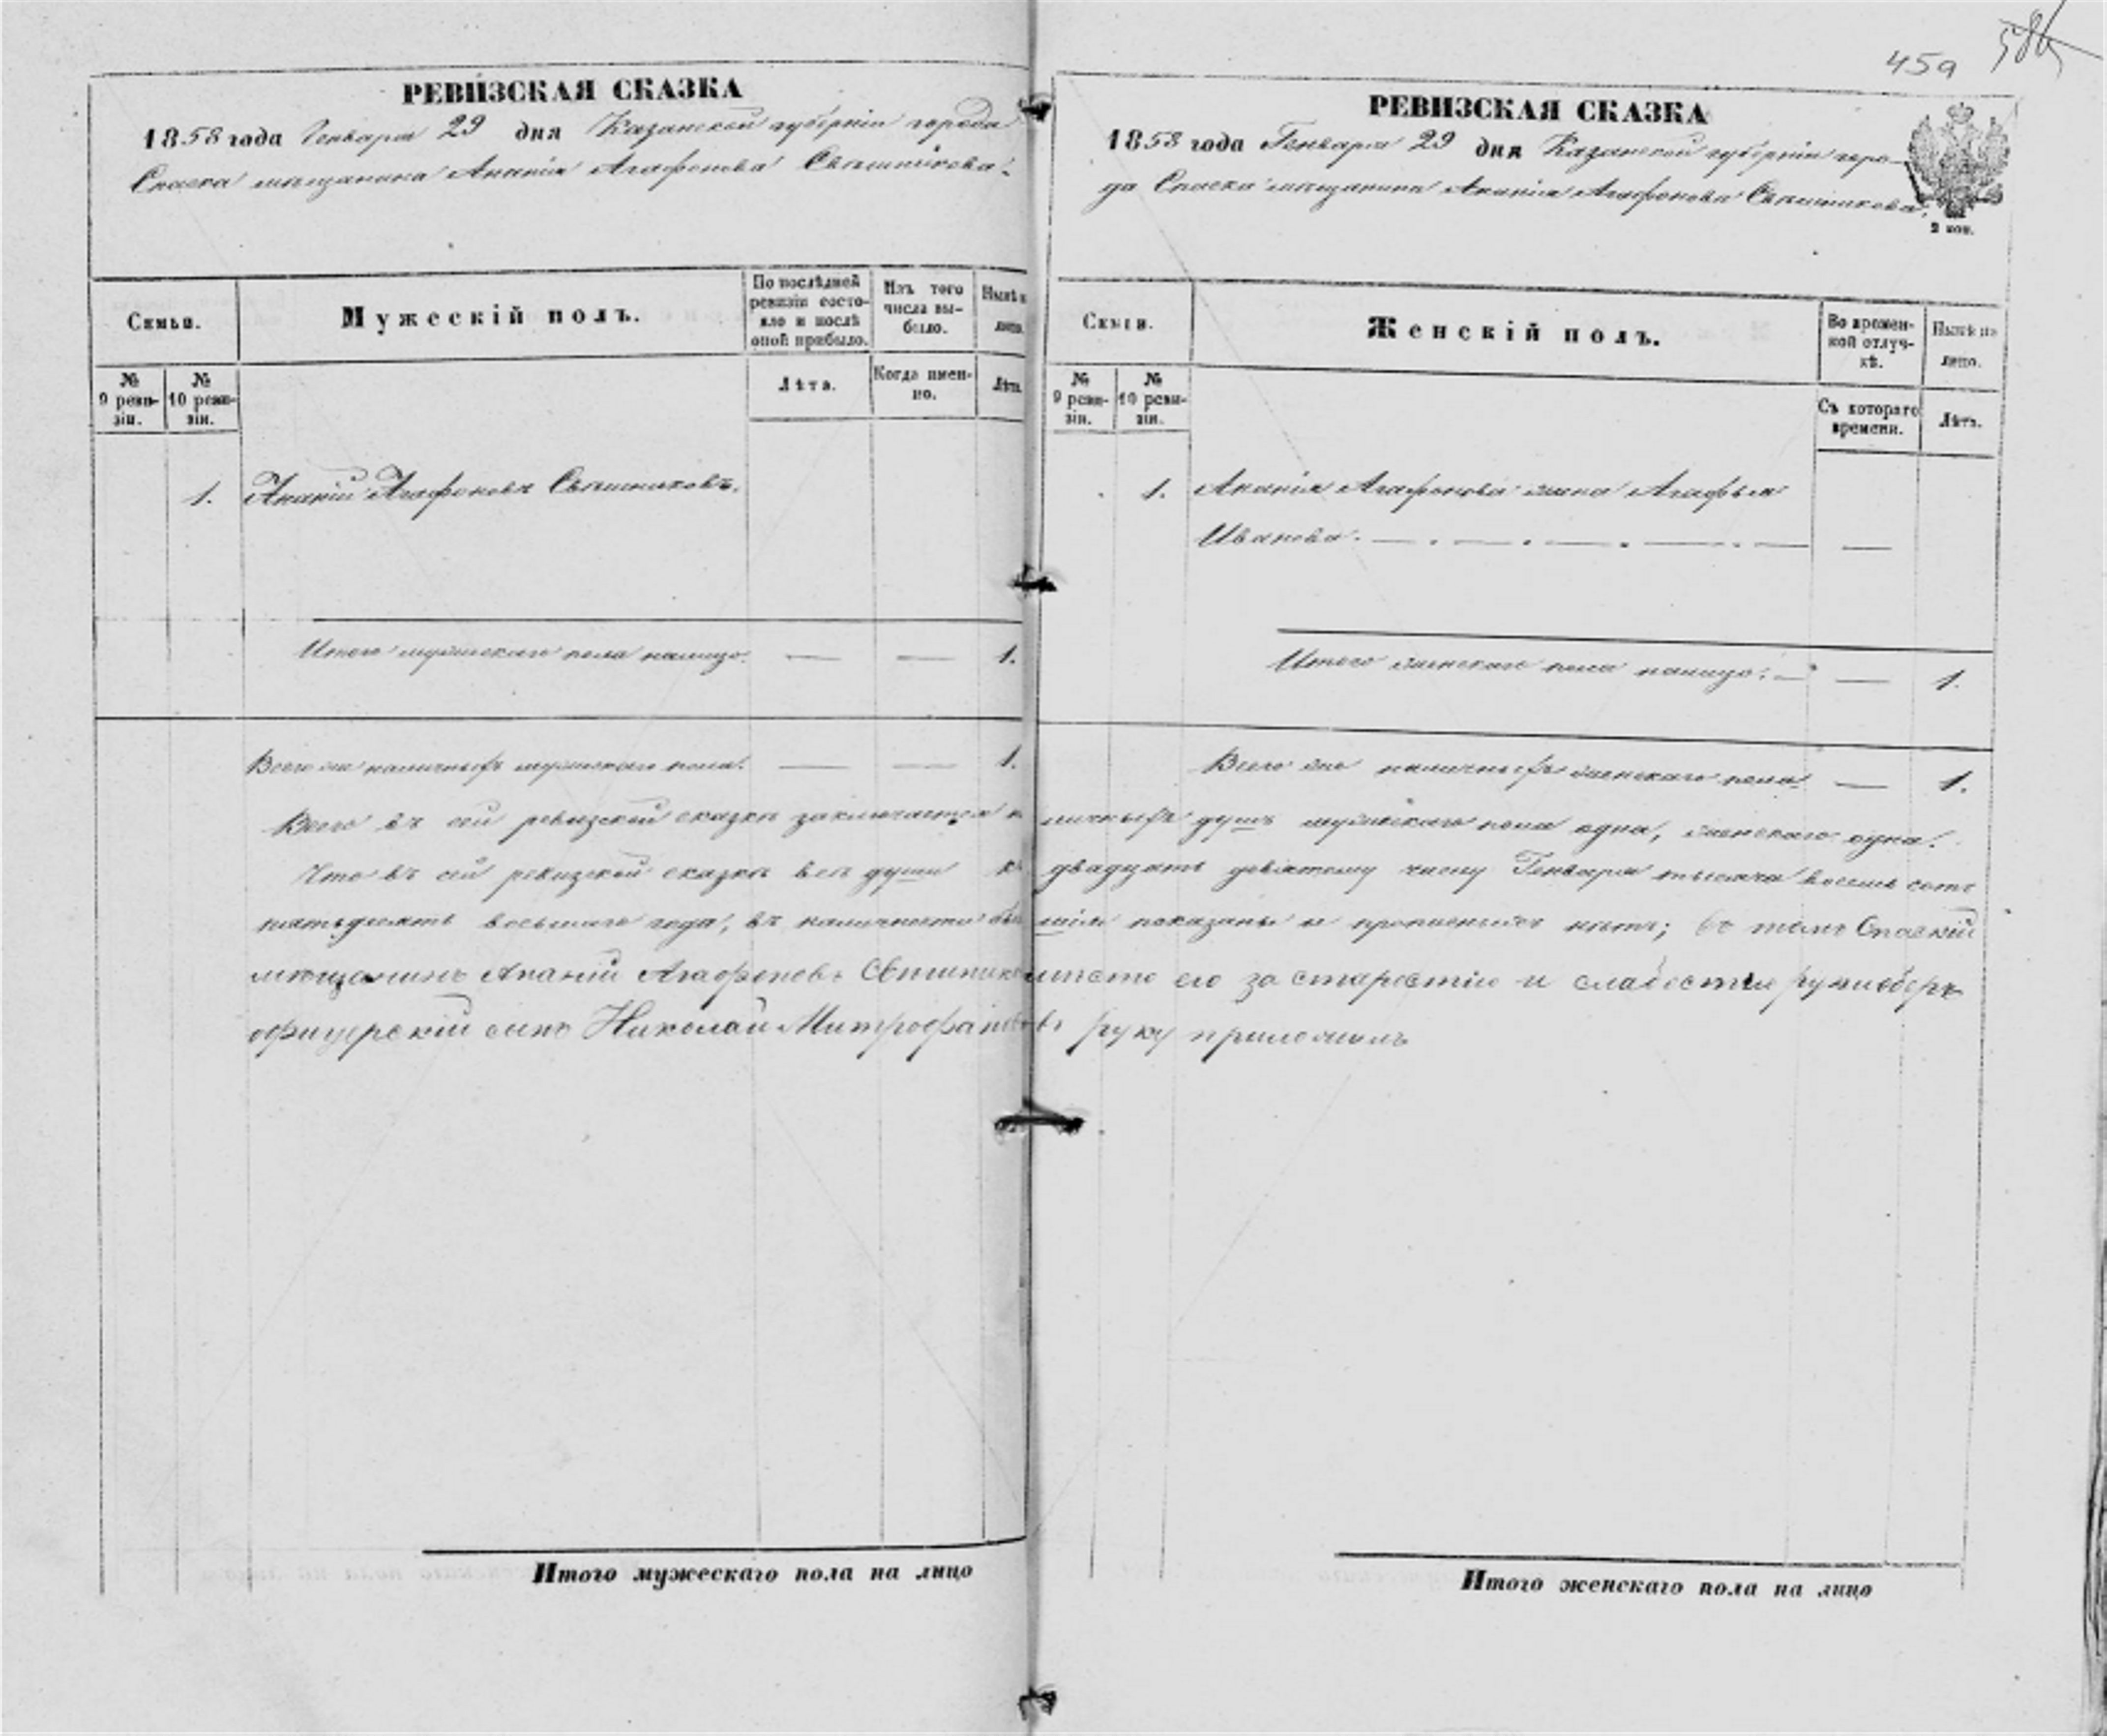 459
586
РЕВИЗСКАЯ СКАЗКА
1858 года Генваря 29 дня Казанской губерніи города
Спаска мѣщанина Ананія Агафонова Свѣшникова.
Семьи.
Мужескій полъ.
По послѣдней ревизіи состояло и послѣ оной прибыло.
Изъ того числа выбыло.
Нынѣ
лицо.
№ 9 ревизіи.
№ 10 ревизіи.
Лѣта.
Когда именно.
Лѣта.
1. Ананій Агафоновъ Свѣшниковъ.
Итого мужескаго пола налицо. — — 1.
Всего же наличныхъ мужескаго пола. — — 1.
РЕВИЗСКАЯ СКАЗКА
1858 года Генваря 29 дня Казанской губерніи горо-
да Спаска мѣщанина Ананія Агафонова Свѣшникова.
2 коп.
Семьи.
Женскій полъ.
Во временной отлучкѣ.
Нынѣ на лицо.
№ 9 ревизіи.
№ 10 ревизіи.
Съ котораго времени.
Лѣта.
1. Ананія Агафонова жена Агафья
Иванова. — . — . — . — . — —
Итого женскаго пола налицо. — — 1.
Всего же наличныхъ женскаго пола. — 1.
Всего въ сей ревизской сказкѣ заключается наличныхъ душъ мужескаго пола одна, женскаго одна.
Что въ сей ревизской сказкѣ всѣ души къ двадцать девятому числу Генваря тысяча восемь сотъ
пятьдесятъ восьмаго года, въ наличности бывшія показаны и прописныхъ нѣтъ; въ томъ Спаскій
мѣщанинъ Ананій Агафоновъ Свѣшниковъ вместо его за старостію и слабостію руки оберъ
офицерскій сынъ Николай Митрофановъ руку приложилъ
Итого мужескаго пола на лицо
Итого женскаго пола на лицо